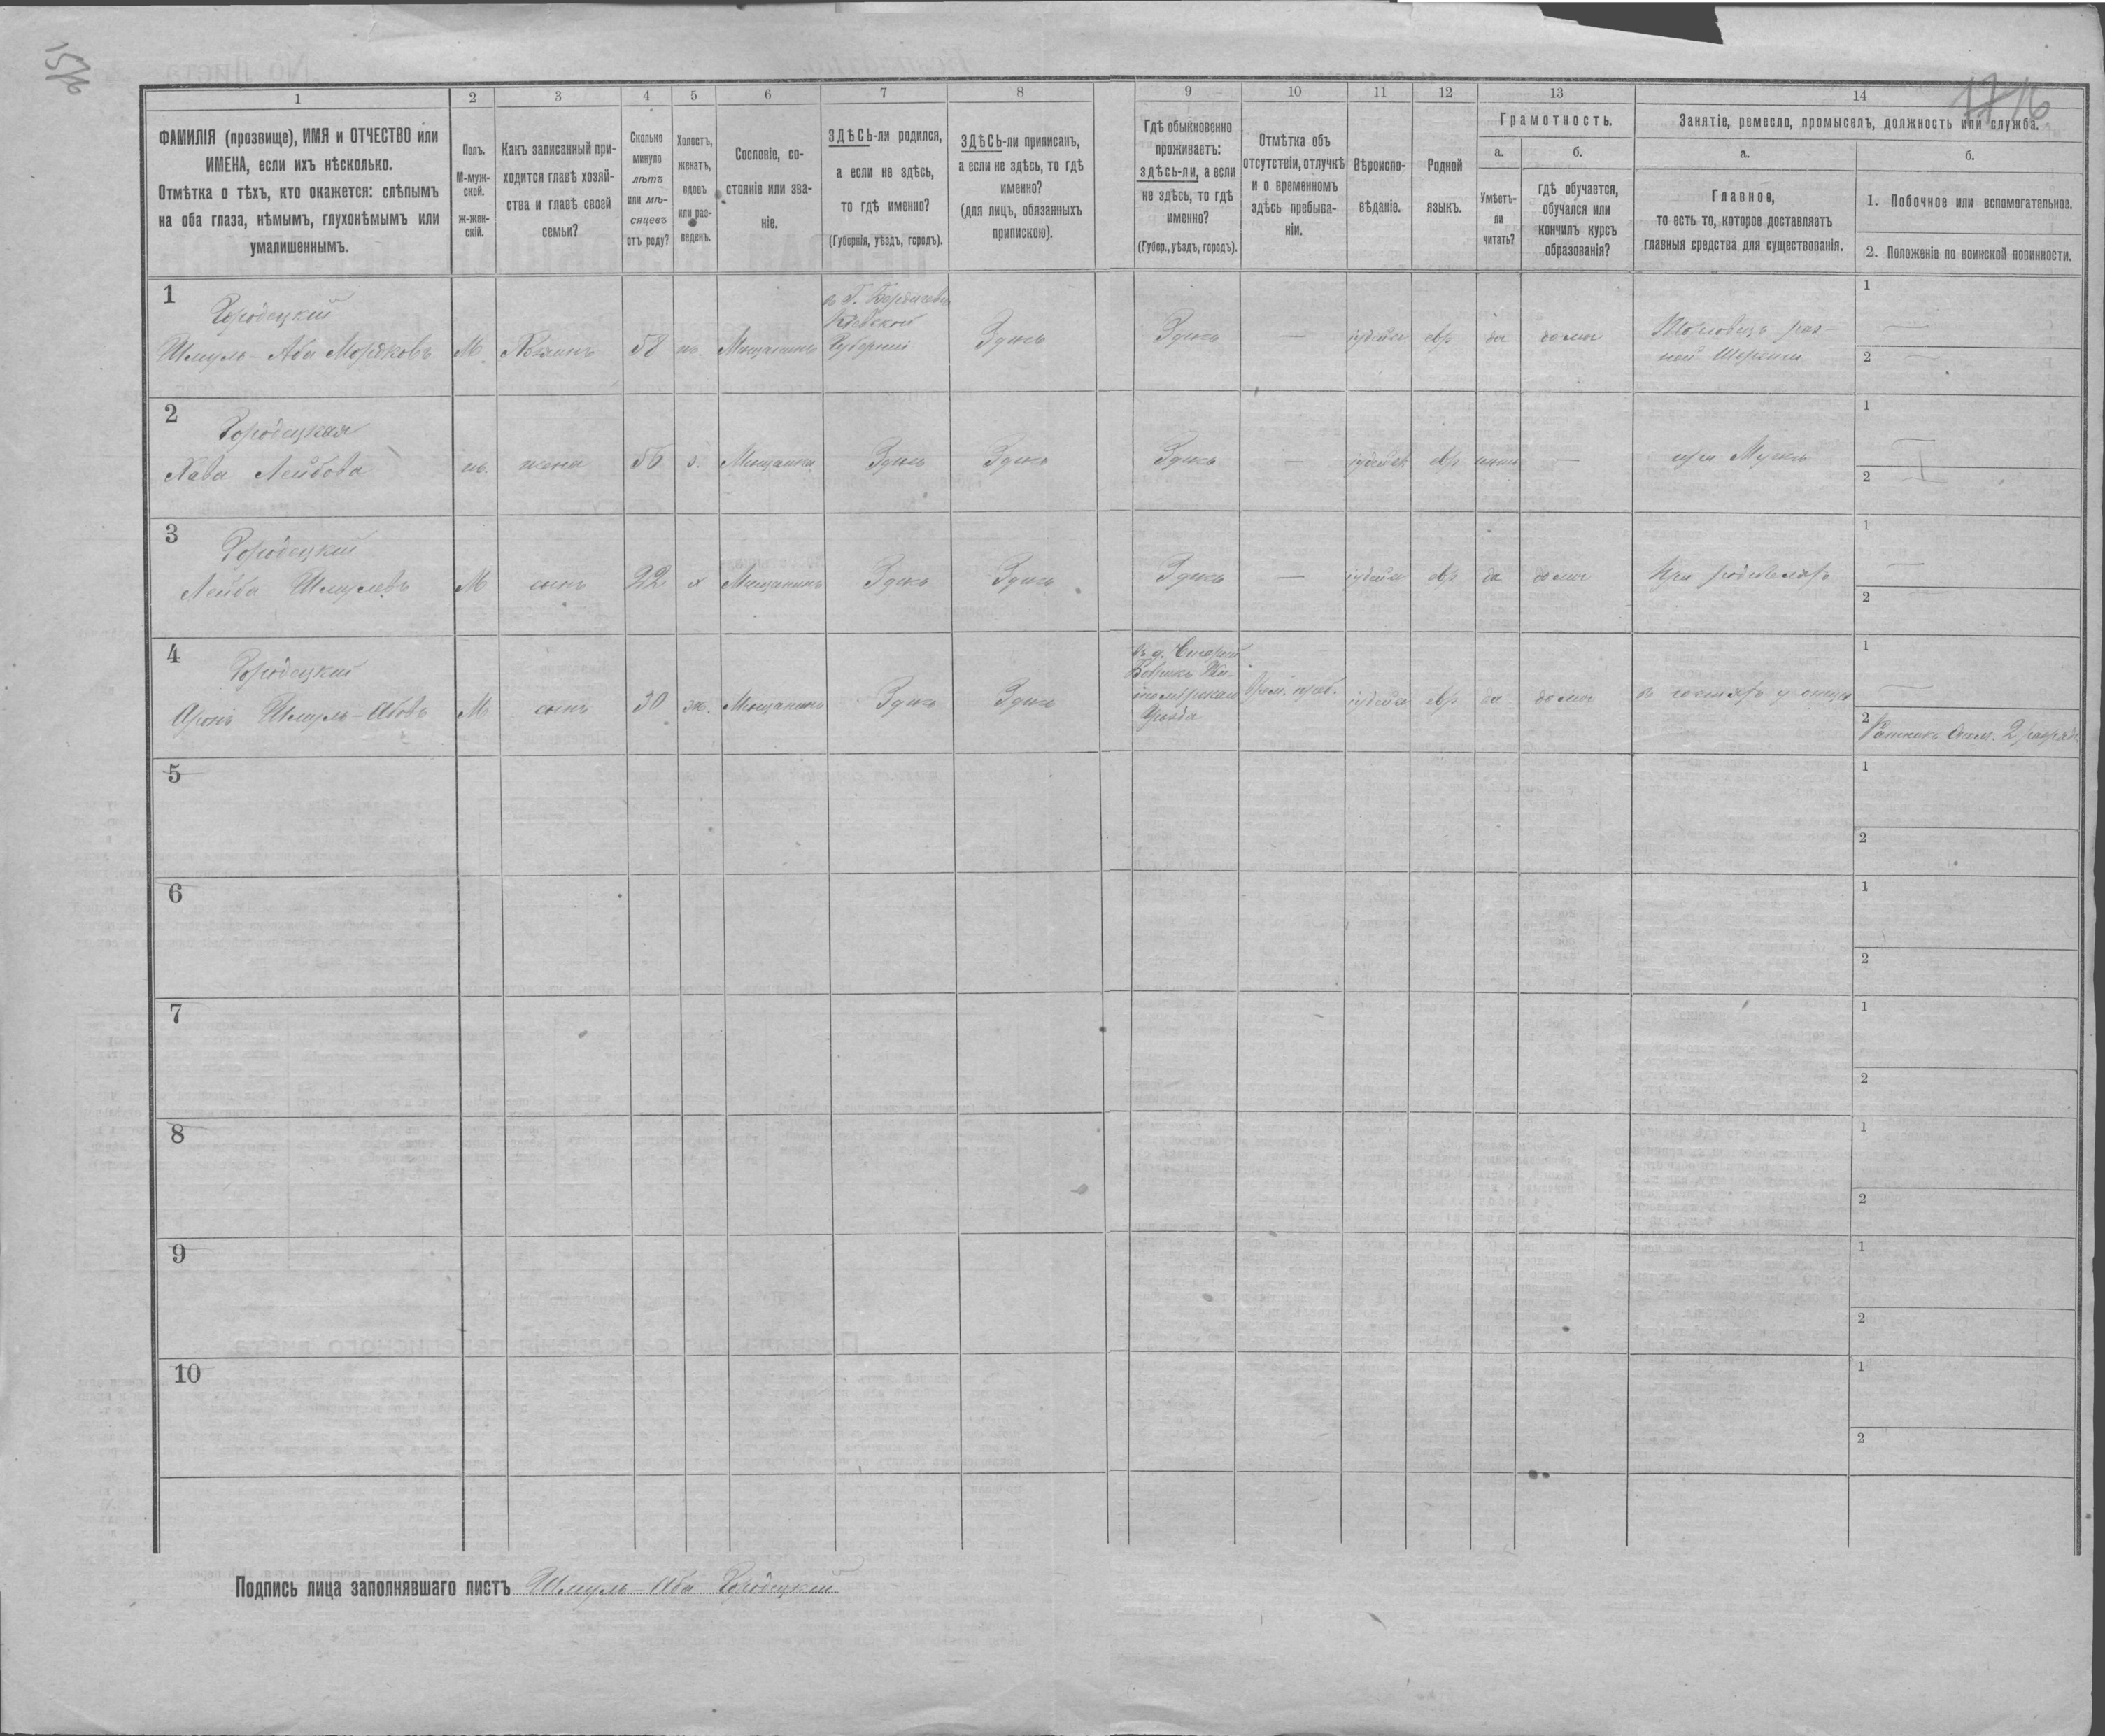 15/6
17/16
1
2
3
4
5
6
7
8
9
10
11
12
13
14
ФАМИЛІЯ (прозвище), ИМЯ и ОТЧЕСТВО или
ИМЕНА, если ихъ нѣсколько.
Отмѣтка о тѣхъ, кто окажется: слѣпымъ
на оба глаза, нѣмымъ, глухонѣмымъ или
умалишеннымъ.
Полъ.
М-муж-
ской.
ж-жен-
скій.
Какъ записанный при-
ходится главѣ хозяй-
ства и главѣ своей
семьи?
Сколько
минуло
лѣтъ
или мѣ-
сяцевъ
отъ роду?
Холостъ,
женатъ,
вдовъ
или раз-
веденъ.
Сословіе, со-
стояніе или зва-
ніе.
ЗДѢСЬ-ли родился,
а если не здѣсь,
то гдѣ именно?
(Губернія, уѣздъ, городъ).
ЗДѢСЬ-ли приписан,
а если не здѣсь, то гдѣ
именно?
(для лицъ, обязанныхъ
припискою).
Гдѣ обыкновенно
проживаетъ:
здѣсь-ли, а если
не здѣсь, то гдѣ
именно?
(Губер., уѣздъ, городъ).
Отмѣтка объ
отсутствіи, отлучкѣ
и о временномъ
здѣсь пребыва-
ніи.
Вѣроиспо-
вѣданіе.
Родной
языкъ.
Грамотность.
а.
Умѣетъ-
ли
читать?
б.
гдѣ обучается,
обучался или
кончилъ курсъ
образованія?
Занятіе, ремесло, промыселъ, должность или служба.
а.
Главное,
то есть то, которое доставляетъ
главныя средства для существованія.
б.
1. Побочное или вспомогательное.
2. Положеніе по воинской повинности.
1
Городецкій
Шмуль-Аба Мордковъ
М
Хозяинъ
58
Мещанинъ
Кіевской
Губерніи
Здѣсь
Здѣсь
—
іудейск
евр
да
дома
Торговецъ раз-
ной
1
—
2
—
2
Городецкая
Хава Лейбова
жена
56
з.
Мещанка
Здѣсь
Здѣсь
Здѣсь
—
іудейск
евр
—
при Мужѣ
1
—
2
—
3
Городецкій
Лейба Шмулевъ
М
сынъ
22
х
Мещанинъ
Здѣсь
Здѣсь
Здѣсь
—
іудейск
евр
да
дома
При родителяхъ
1
—
2
—
4
Городецкій
Аронъ Шмуль-Абовъ
М
сынъ
30
ж.
Мещанинъ
Здѣсь
Здѣсь
въ д. Старый
Уѣзда
врем. преб.
іудейск
евр
да
дома
въ гостяхъ у отца
1
—
2
Ратникъ Опол. 2 разряд.
5
1
2
6
1
2
7
1
2
8
1
2
9
1
2
10
1
2
Подпись лица заполнявшаго листъ Шмуль Аба Городецкій